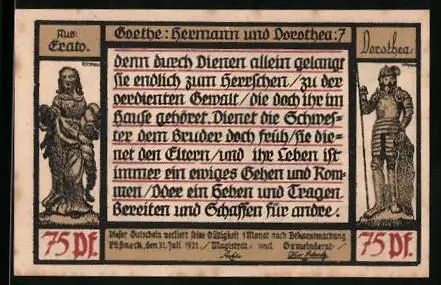 Aus:
Erato.
Goethe: Hermann und Dorothea: 7
Dorothea
denn durch Dienen allein gelangt
sie endlich zum Herrschen / zu der
verdienten Gewalt / die doch ihr im
Hause gehöret. Dienet die Schwes-
ter dem Bruder doch früh / sie die-
net den Eltern / und ihr Leben ist
immer ein ewiges Gehen und Kom-
men / Oder ein Heben und Tragen
Bereiten und Schaffen für andre.
Dieser Gutschein verliert seine Gültigkeit 1 Monat nach Bekanntmachung
Pößneck, den 31. Juli 1921. Magistrat und Gemeinderat.
75 Pf.
75 Pf.